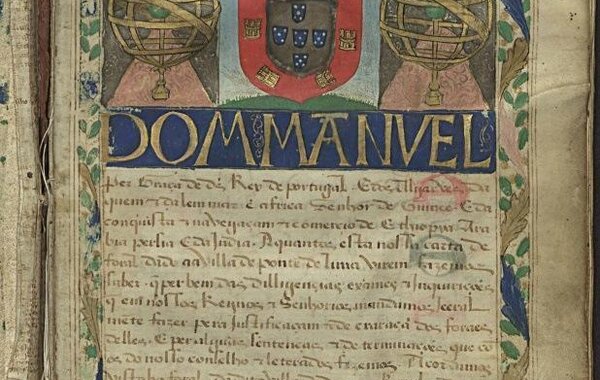 DOM MANVEL
per Graça de ds Rey de portugal. E dos Algarves da
quem & da lem mar. E affrica Senhor de Guinee. E da
conquista & navegaçam & comercio de Ethiopia. Ara
bia persia E da India. A quantos esta nossa carta de
foral dado aa villa de ponte de lima virem fazemos
saber. q per bem das dilligencias exames & Inquirições
q em nossos Regnos & Senhorios mandamos jeeral
mete fazer pera justificaçam & decraraçã dos foraes
delles. E per alguas sentenças & determinações que cõ
os do nosso conselho & leterados fezemos.